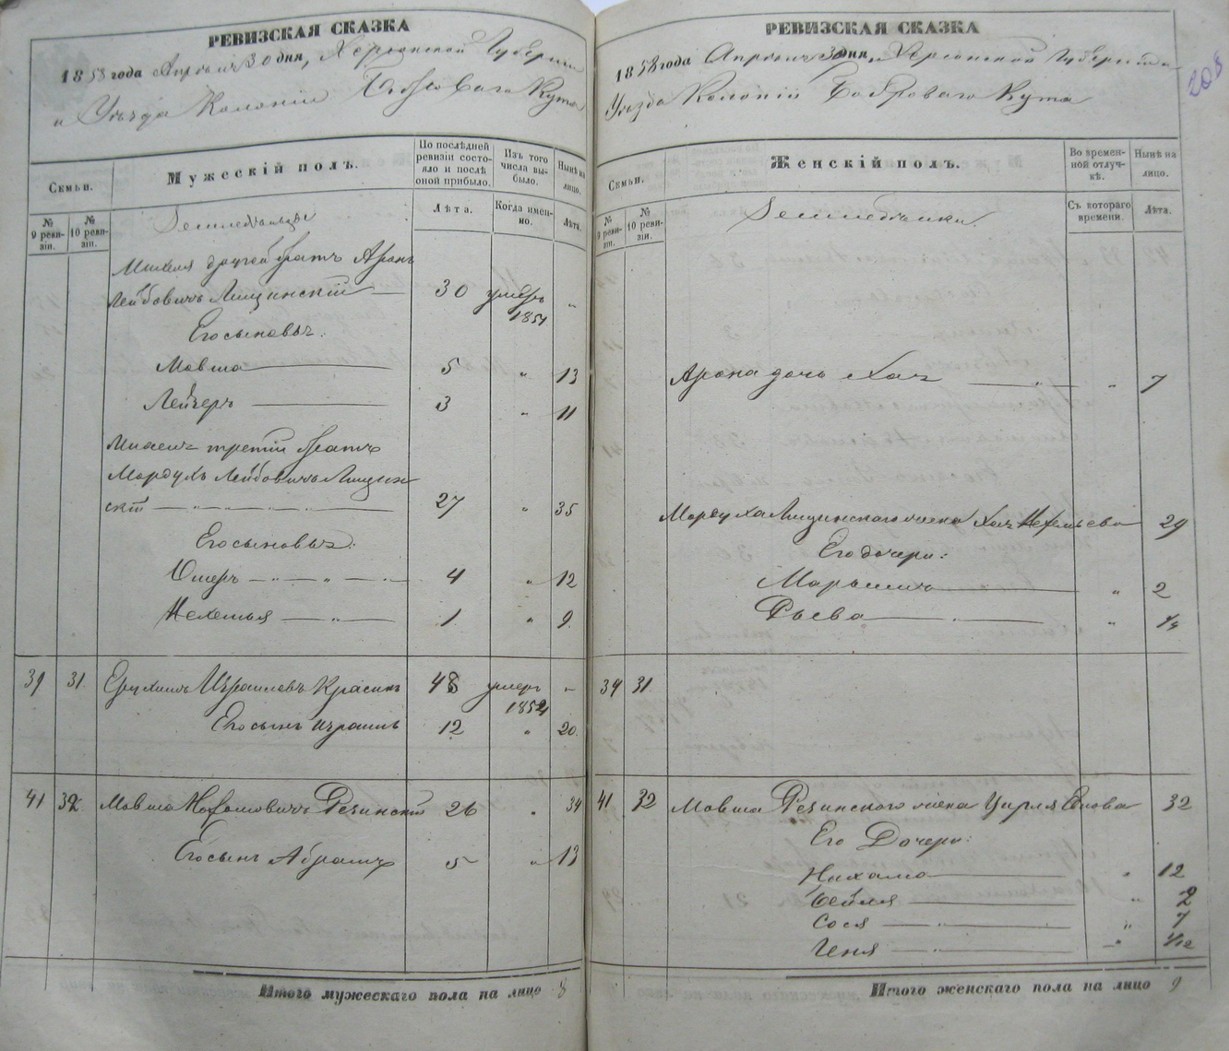 РЕВИЗСКАЯ СКАЗКА
1858 года Апреля 30 дня, Херсонской Губернии
и Уезда Колонии Боброваго Кута
Семьи.
Мужескій полъ.
По послѣдней ревизіи состояло и послѣ оной прибыло.
Изъ того числа выбыло.
Нынѣ на лицо.
№ 9 ревизіи.
№ 10 ревизіи.
Лѣта.
Когда именно.
Лѣта.
Земледѣльцы
другой братъ Аронъ
Лейбовичъ Лищинскій — 30 умеръ 1851 „
Его сыновья:
Мовша — 5 „ 13
Лейзеръ — 3 „ 11
третій братъ
Мордухъ Лейбовичъ Лищин
скій — 27 „ 35
Его сыновья:
— 4 „ 12
Нехемья — 1 „ 9
39 31 Израилевъ Красикъ 48 умеръ 1852 „
Его сынъ Израиль 12 „ 20
41 32 Мовша Резинскій 26 „ 34
Его сынъ Абрамъ 5 „ 13
Итого мужескаго пола на лицо 8
РЕВИЗСКАЯ СКАЗКА
205
1858 года Апреля 30 дня, Херсонской Губерніи
Уезда Колоніи Боброваго Кута
Семьи.
Женскій полъ.
Во временной отлучкѣ.
Нынѣ на лицо.
№ 9 ревизіи.
№ 10 ревизіи.
Съ котораго времени.
Лѣта.
Арона дочь Хая — „ 7
Мордуха Лищинскаго жена Хая 29
Его дочери:
— „ 2
— „
39 31
41 32 Мовша Резинскаго жена Цирля 32
Его Дочери:
Нахама — „ 12
Бейля — „
Сося — „ 7
Геня — „ 1/12
Итого женскаго пола на лицо 9